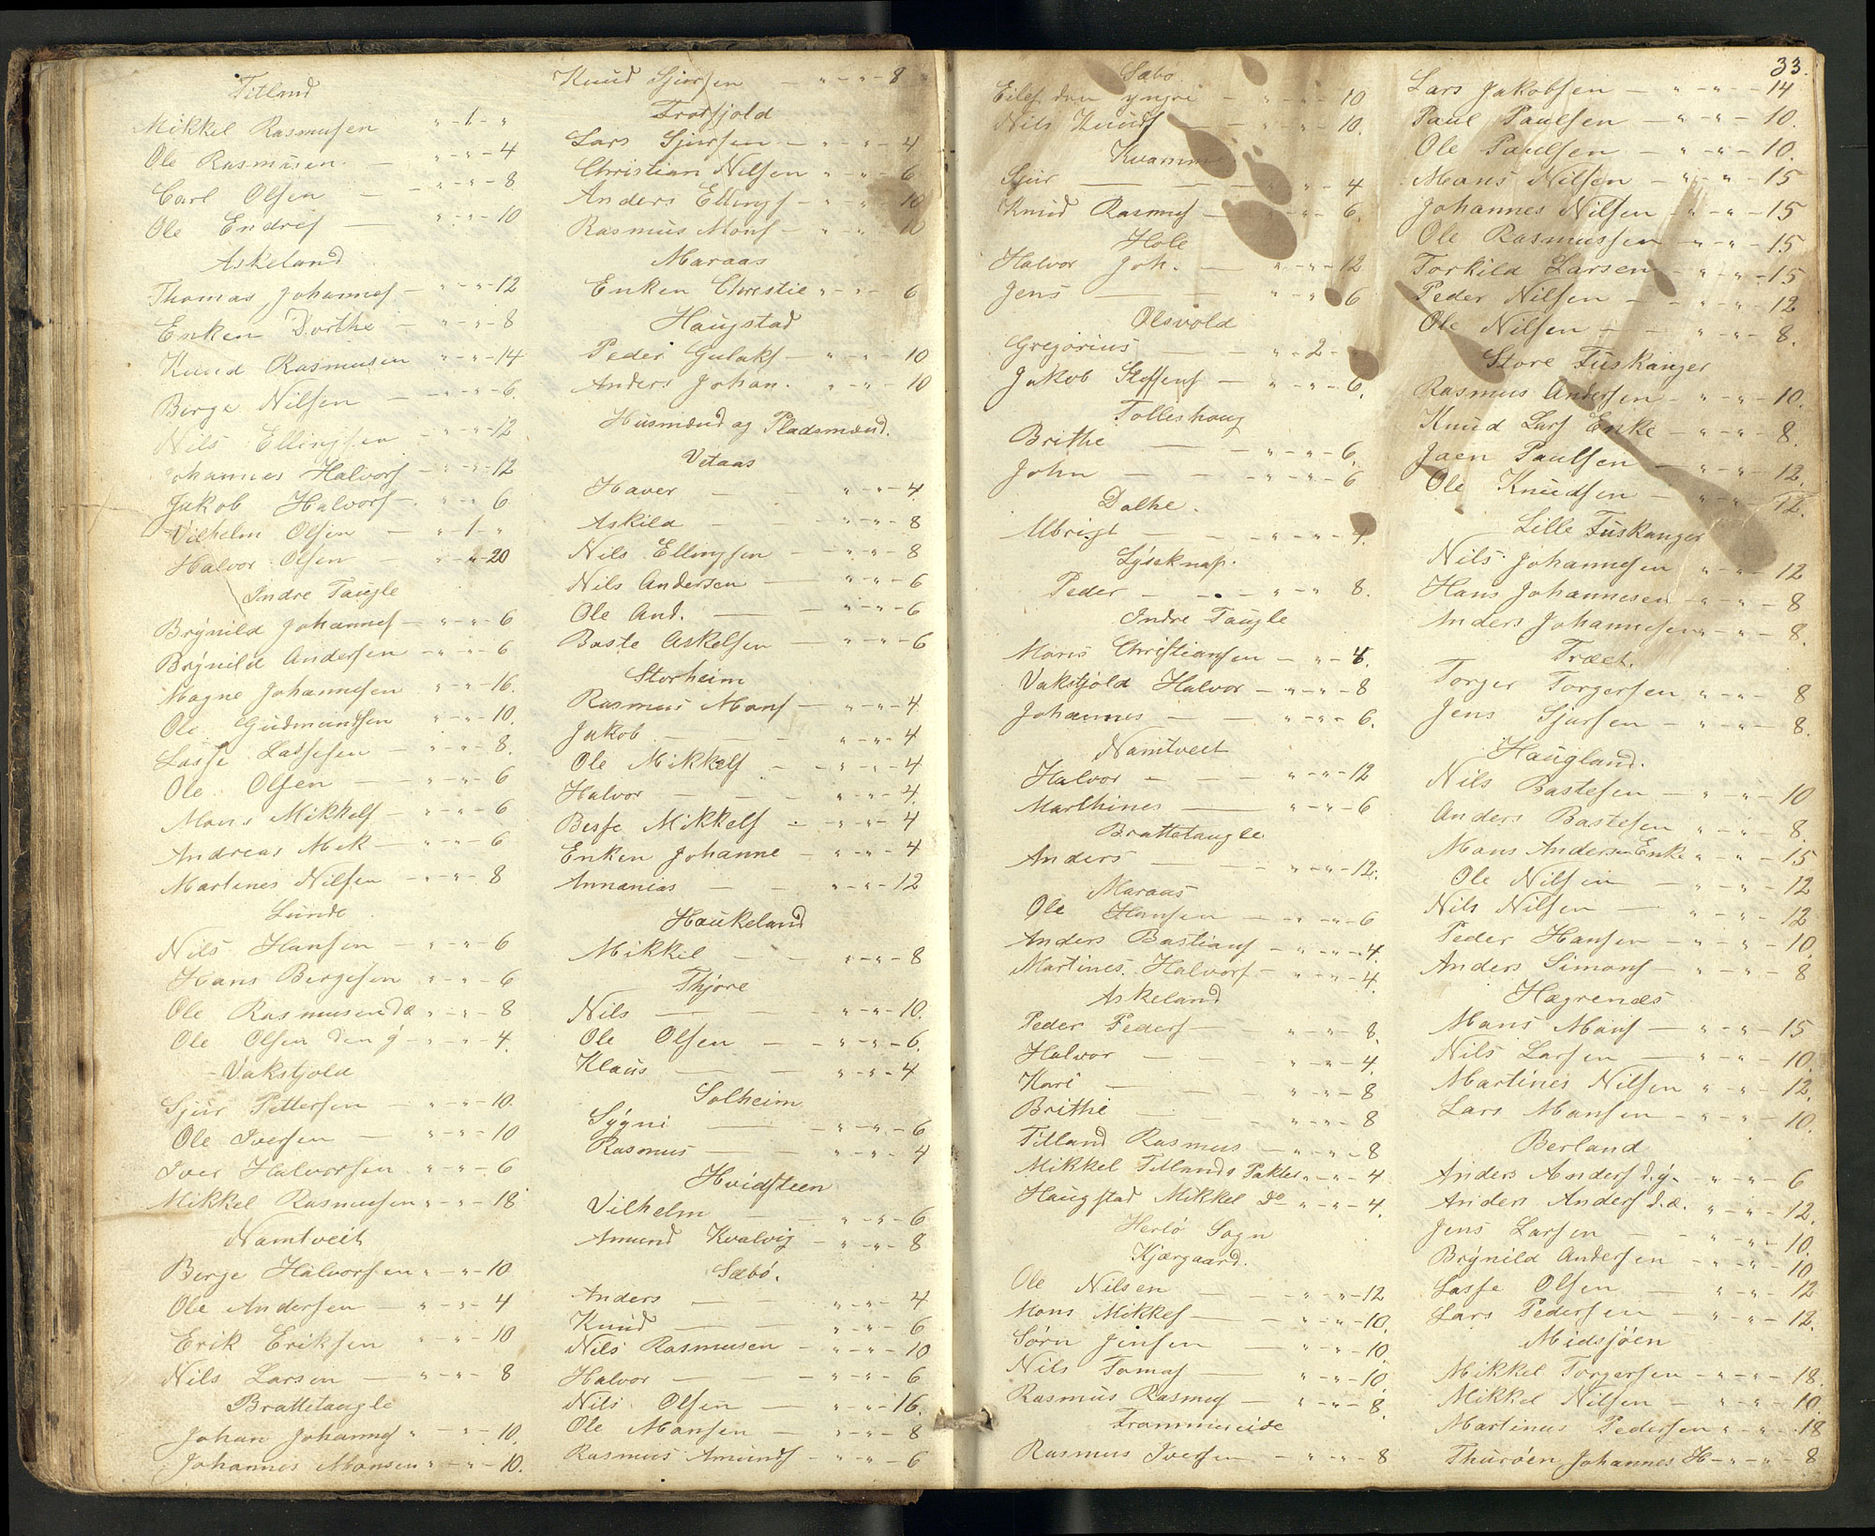 Titland
Mikkel Rasmusen " - 1 - "
Ole Rasmusen - " - " - 4
Carl Olsen - " - " - 8
Ole Endres - " - " - 10
Askeland
Thomas Johannes - " - " - 12
Enken Dorthe - " - " - 8
Knud Rasmusen " - " - 14
Berge Nilsen - " - " - 6.
Nils Ellingsen - " - " - 12.
Johannes Halvors - " - " - 12
Jakob Halvors - " - " 6
Vilhelm Olsen - " - 1 - "
Halvor Olsen - " - " - 20
Indre Taugle
Brynild Johannes - " - " - 6
Brynild Andersen - " - " - 6
Magne Johannesen " - " - 16.
Ole Gudmundsen " - " - 10.
Lasse Lassesen - " - " - 8.
Ole Olsen - " - " - 6
Mons Mikkels - " - " - 6
Andreas Mek - " - " - 6
Martines Nilsen - " - " - 8
Lunde
Nils Hansen - " - " - 6
Hans Bergesen " - " - 6
Ole Rasmusen d æ " - " - 8
Ole Olsen den y - " - " - 4.
Vakstjold
Sjur Pettersen - " - " - 10.
Ole Iversen - " - " - 10
Iver Halvorsen " - " - 6
Mikkel Rasmusen " - " - 18
Namtveit
Berge Halvorsen " - " - 10
Ole Andersen - " - " - 4
Erik Eriksen " - " - 10
Nils Larsen - " - " - 8
Brattetaugle
Johan Johannes " - " - 10.
Johannes Monsen " - " - 10.
Knud Sjursen - " - " - 8
Trotsjold
Lars Sjursen - " - " - 4
Christian Nilsen " - " - 6
Anders Ellings - " - " - 10
Rasmus Mons - " - " 10
Maraas
Enken Christie " - " - 6
Haugstad
Peder Gulaks - " - " - 10
Anders Johan. " - " - 10
Husmænd og Pladsmænd.
Vetaas
Haver - - " - " - 4
Askild - - " - " - 8
Nils Ellingsen - " - " - 8
Nils Andersen - " - " - 6
Ole And. - - " - " - 6
Baste Askelsen - " - " - 6
Storheim
Rasmus Mons - " - " - 4
Jakob - - " - " - 4
Ole Mikkels - " - " - 4
Halvor - - " - " - 4.
Besse Mikkels - " - " - 4
Enken Johanne - " - " - 4
Annanias - - " - " - 12
Haukeland
Mikkel - - " - " - 8
Thjore
Nils - - " - " - 10.
Ole Olsen - " - " - 6.
Klaus - - " - " - 4
Solheim
Sygni - - " - " - 6
Rasmus - - " - " - 4
Hvidsteen
Vilhelm - - " - " - 6
Amund Kvalvig - " - " - 8
Sæbö.
Anders - - " - " - 4
Knud - - " - " - 6
Nils Rasmusen - " - " - 10
Halvor - - " - " - 6
Nils Olsen - " - " - 16.
Ole Monsen - " - " - 8
Rasmus Amunds - " - " - 6
33.
Sæbö.
Eilef den yngre - " - " - 10
Nils Knuds - " - " - 10.
Kvamme
Sjur - - " - " - 4
Knud Rasmus - " - " - 6.
Hole
Halvor Joh. - " - " - 12
Jens - - " - " 6
Olsvold
Gregorius - - " - 2 -
Jakob Stoffens - " - " - 6.
Tolleshaug
Brithe - - " - " - 6.
John - - " - " - 6
Dalhe.
Ubrigt - - " - "
Lyseknap.
Peder - - " - " - 8.
Indre Taugle
Mons Christiansen - " - 4.
Vakstjold Halvor - " - " - 8
Johannes - - " - " - 6.
Namtveit
Halvor - - " - " - 12
Marthines - - " - " - 6
Brattetaugle
Anders - - " - " - 12.
Maraas
Ole Hansen - " - " - 6
Anders Bastians - " - " - 4.
Martines Halvors - " - " - 4.
Askeland
Peder Peders - " - " - 8.
Halvor - - " - " - 4.
Kari - - " - " - 8
Brithe - - " - " - 8
Titland Rasmus - " - " - 8
Mikkel Titlands Pakter " - " - 4
Haugstad Mikkel Do " - " - 4.
Herlö Sogn
Kjærgaard.
Ole Nilsen - " - " - 12
Mons Mikkels - " - " - 10.
Sörn Jensen - " - " - 10.
Nils Tomas - " - " - 10.
Rasmus Rasmus - " - " - 8.
Frommereide
Rasmus Iversen - " - " - 8
Lars Jakobsen - " - " - 14
Paul Paulsen - " - " - 10.
Ole Paulsen - " - " - 10.
Mons Nilsen - " - " - 15
Johannes Nilsen - " - " - 15
Ole Rasmussen - " - " - 15
Torkild Larsen - " - " - 15
Peder Nilsen - " - " - 12
Ole Nilsen - " - " - 8.
Store Fuskanger
Rasmus Andersen - " - " - 10.
Knud Lars Enke - " - " - 8.
Joen Paulsen - " - " - 12.
Ole Knudsen - " - " - 12.
Lille Fuskanger
Nils Johannesen " - " - 12
Hans Johannesen - " - " - 8
Anders Johannesen " - " - 8.
Træet.
Torger Torgersen " - " - 8
Jens Sjursen - " - " - 8.
Haugland.
Nils Bastesen - " - " - 10
Anders Bastesen " - " - 8
Mons Andersen Enke " - " - 15
Ole Nilsen - " - " - 12
Nils Nilsen - " - " - 12
Peder Hansen - " - " - 10.
Anders Simons - " - " - 8
Hægrenæs
Mons Mons - " - " - 15
Nils Larsen - " - " - 10.
Martines Nilsen " - " - 12.
Lars Monsen - " - " - 10.
Berland
Anders Anders d. y. - " - " - 6
Anders Anders d. æ. " - " - 12.
Jens Larsen - " - " - 10.
Brynild Andersen " - " - 10
Lasse Olsen - " - " - 12
Lars Pedersen - " - " - 12.
Midsjöen
Mikkel Torgersen - " - " - 18.
Mikkel Nilsen - " - " - 10.
Martinus Pedersen " - " - 18
Thuröen Johannes H - " - " - 8